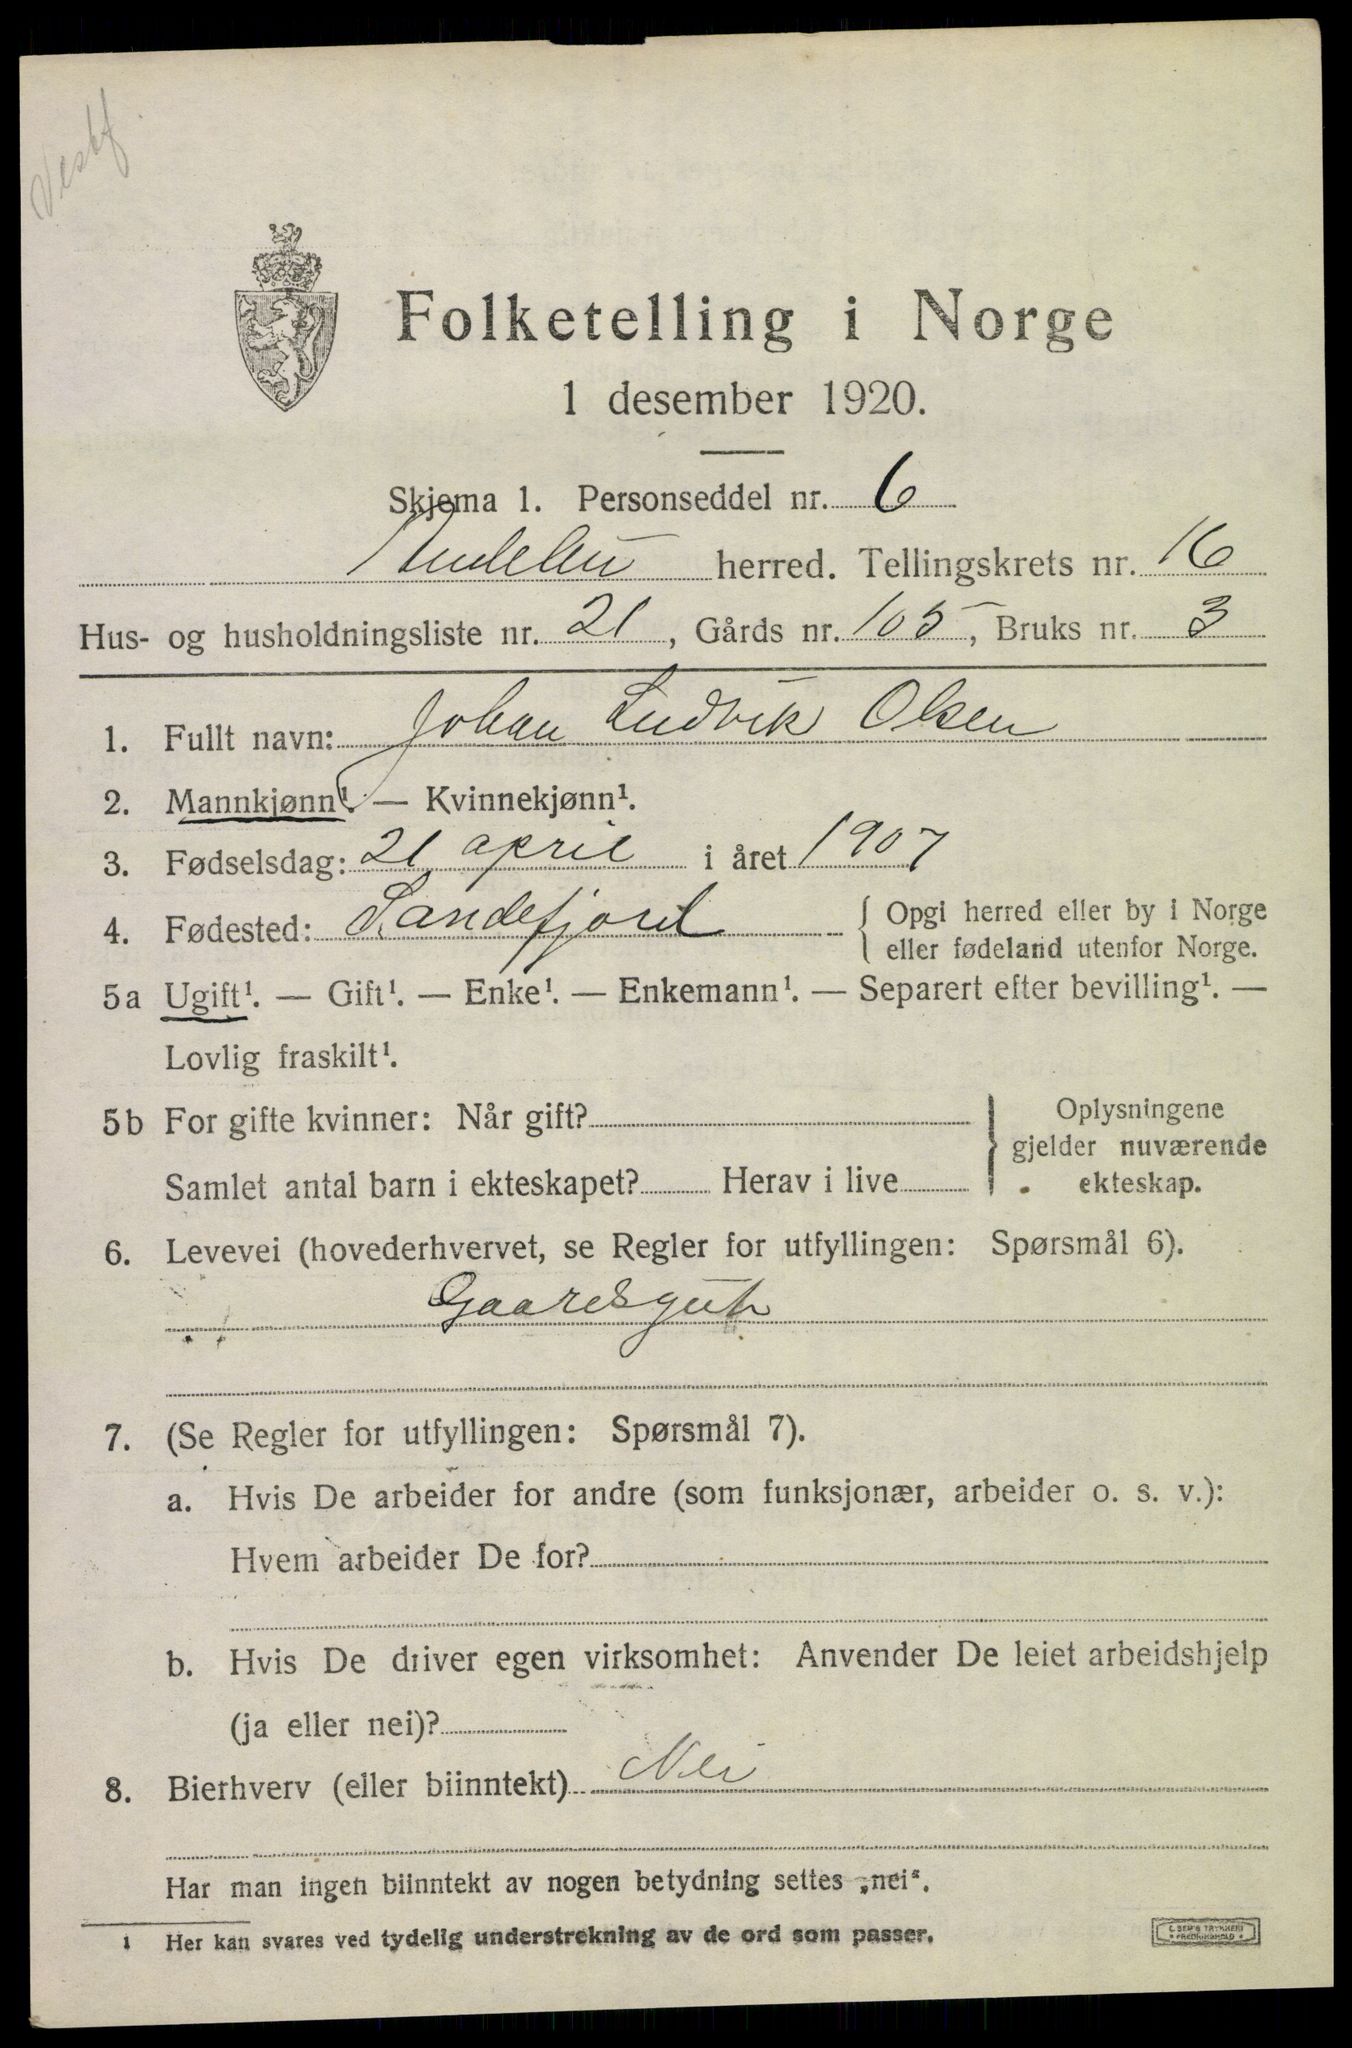 Vestf.
Folketelling i Norge
1 desember 1920.
Skjema 1. Personseddel nr. 6
Andebu herred. Tellingskrets nr. 16
Hus- og husholdningsliste nr. 21, Gårds nr. 105, Bruks nr. 3
1. Fullt navn: Johan Ludvik Olsen
2. Mannkjønn¹. — Kvinnekjønn¹.
3. Fødselsdag: 21 april i året 1907
4. Fødested: Sandefjord { Opgi herred eller by i Norge
eller fødeland utenfor Norge.
5a Ugift¹. — Gift¹. — Enke¹. — Enkemann¹. — Separert efter bevilling¹. —
Lovlig fraskilt¹.
5b For gifte kvinner: Når gift? } Oplysningene
gjelder nuværende
Samlet antal barn i ekteskapet? Herav i live ekteskap.
6. Levevei (hovederhvervet, se Regler for utfyllingen: Spørsmål 6).
Gaardsgut
7. (Se Regler for utfyllingen: Spørsmål 7).
a. Hvis De arbeider for andre (som funksjonær, arbeider o. s. v.):
Hvem arbeider De for?
b. Hvis De driver egen virksomhet: Anvender De leiet arbeidshjelp
(ja eller nei)?
8. Bierhverv (eller biinntekt) Nei
Har man ingen biinntekt av nogen betydning settes „nei“.
1 Her kan svares ved tydelig understrekning av de ord som passer.
E. SEM'S TRYKKERI
FREDRIKSHALD